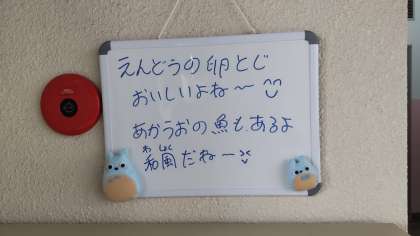 えんどうの卵とじ
おいしいよね～
あかうおの魚もあるよ
和風だねー